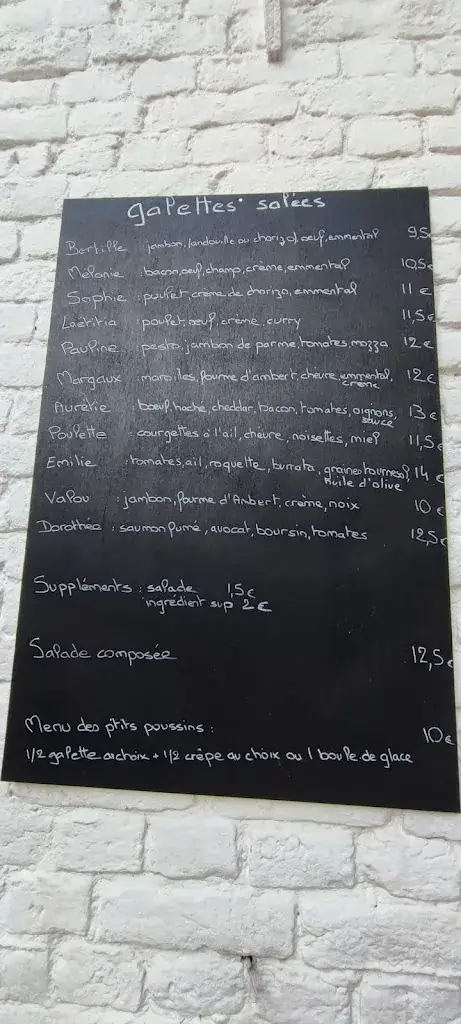 galettes salées
Bertille : jambon, (andouille ou chorizo), oeuf, emmental 9,5€
Mélanie : bacon, oeuf, champ, crème, emmental 10,5€
Sophie : poulet, crème de chorizo, emmental 11 €
Laëtitia : poulet, oeuf, creme, curry 11,5€
Pauline : pesto, jambon de parme, tomates, mozza 12 €
Margaux : maroilles, fourme d'ambert, chevre, emmental, 12€
crème
Aurélie : boeuf, haché, cheddar, bacon, tomates, oignons, 13€
sauce
Poulette : courgettes à l'ail, chevre, noisettes, miel 11,5€
Emilie : tomates, ail, roquette, burrata, graines tournesol, 14 €
huile d'olive
Valou : jambon, fourme d'Ambert, crème, noix 10 €
Dorothée : saumon fumé, avocat, boursin, tomates 12,5€
Suppléments : salade 1,5€
ingrédient sup 2€
Salade composée 12,5€
Menu des ptits poussins : 10€
1/2 galette au choix + 1/2 crêpe au choix ou 1 boule de glace